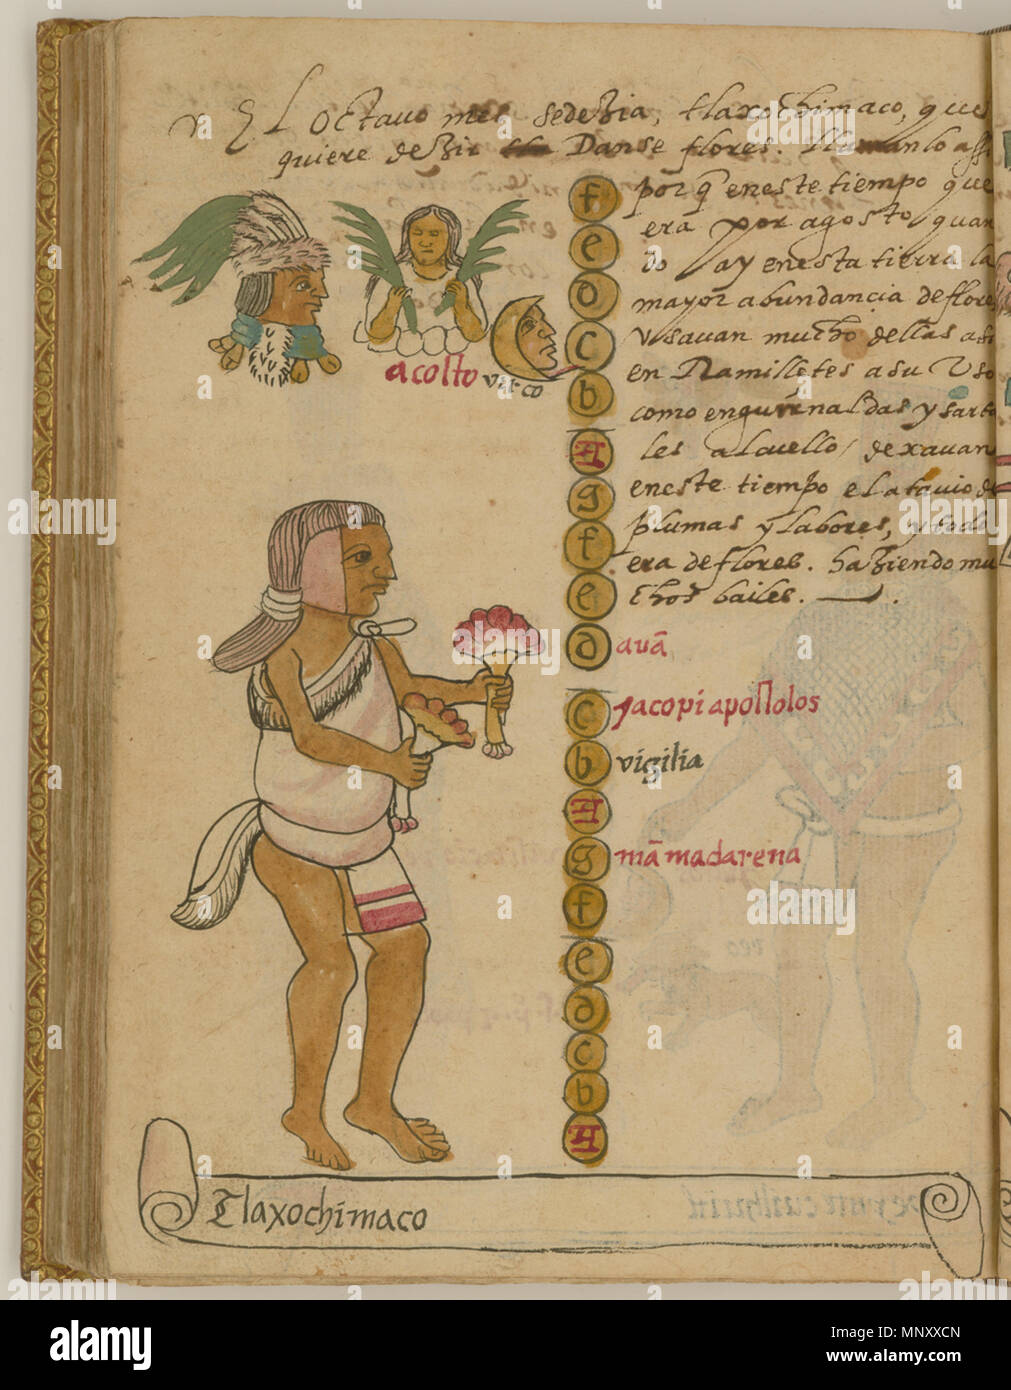 El octavo mes sedezia, tlaxochimaco, que
quiere dezir Danse flores. llamanlo assi
por q̃ eneste tiempo que
era por agosto quan
do ay enesta tierra la
mayor abundancia de flores
Vsavan mucho dellas asi
en Ramilletes a su Vso
como enguirnaldas y sarta
les al cuello, dexavan
eneste tiempo el atavio de
plumas y labores, y todo
era de flores. haziendo mu
chos bailes.
acosto
f
e
d
c
b
A
g
f
e
d avã
c Jacopi apostolos
b vigilia
A
g mã madarena
f
e
d
c
b
A
Tlaxochimaco
a
alamy
Image ID: MNXXCN
www.alamy.com